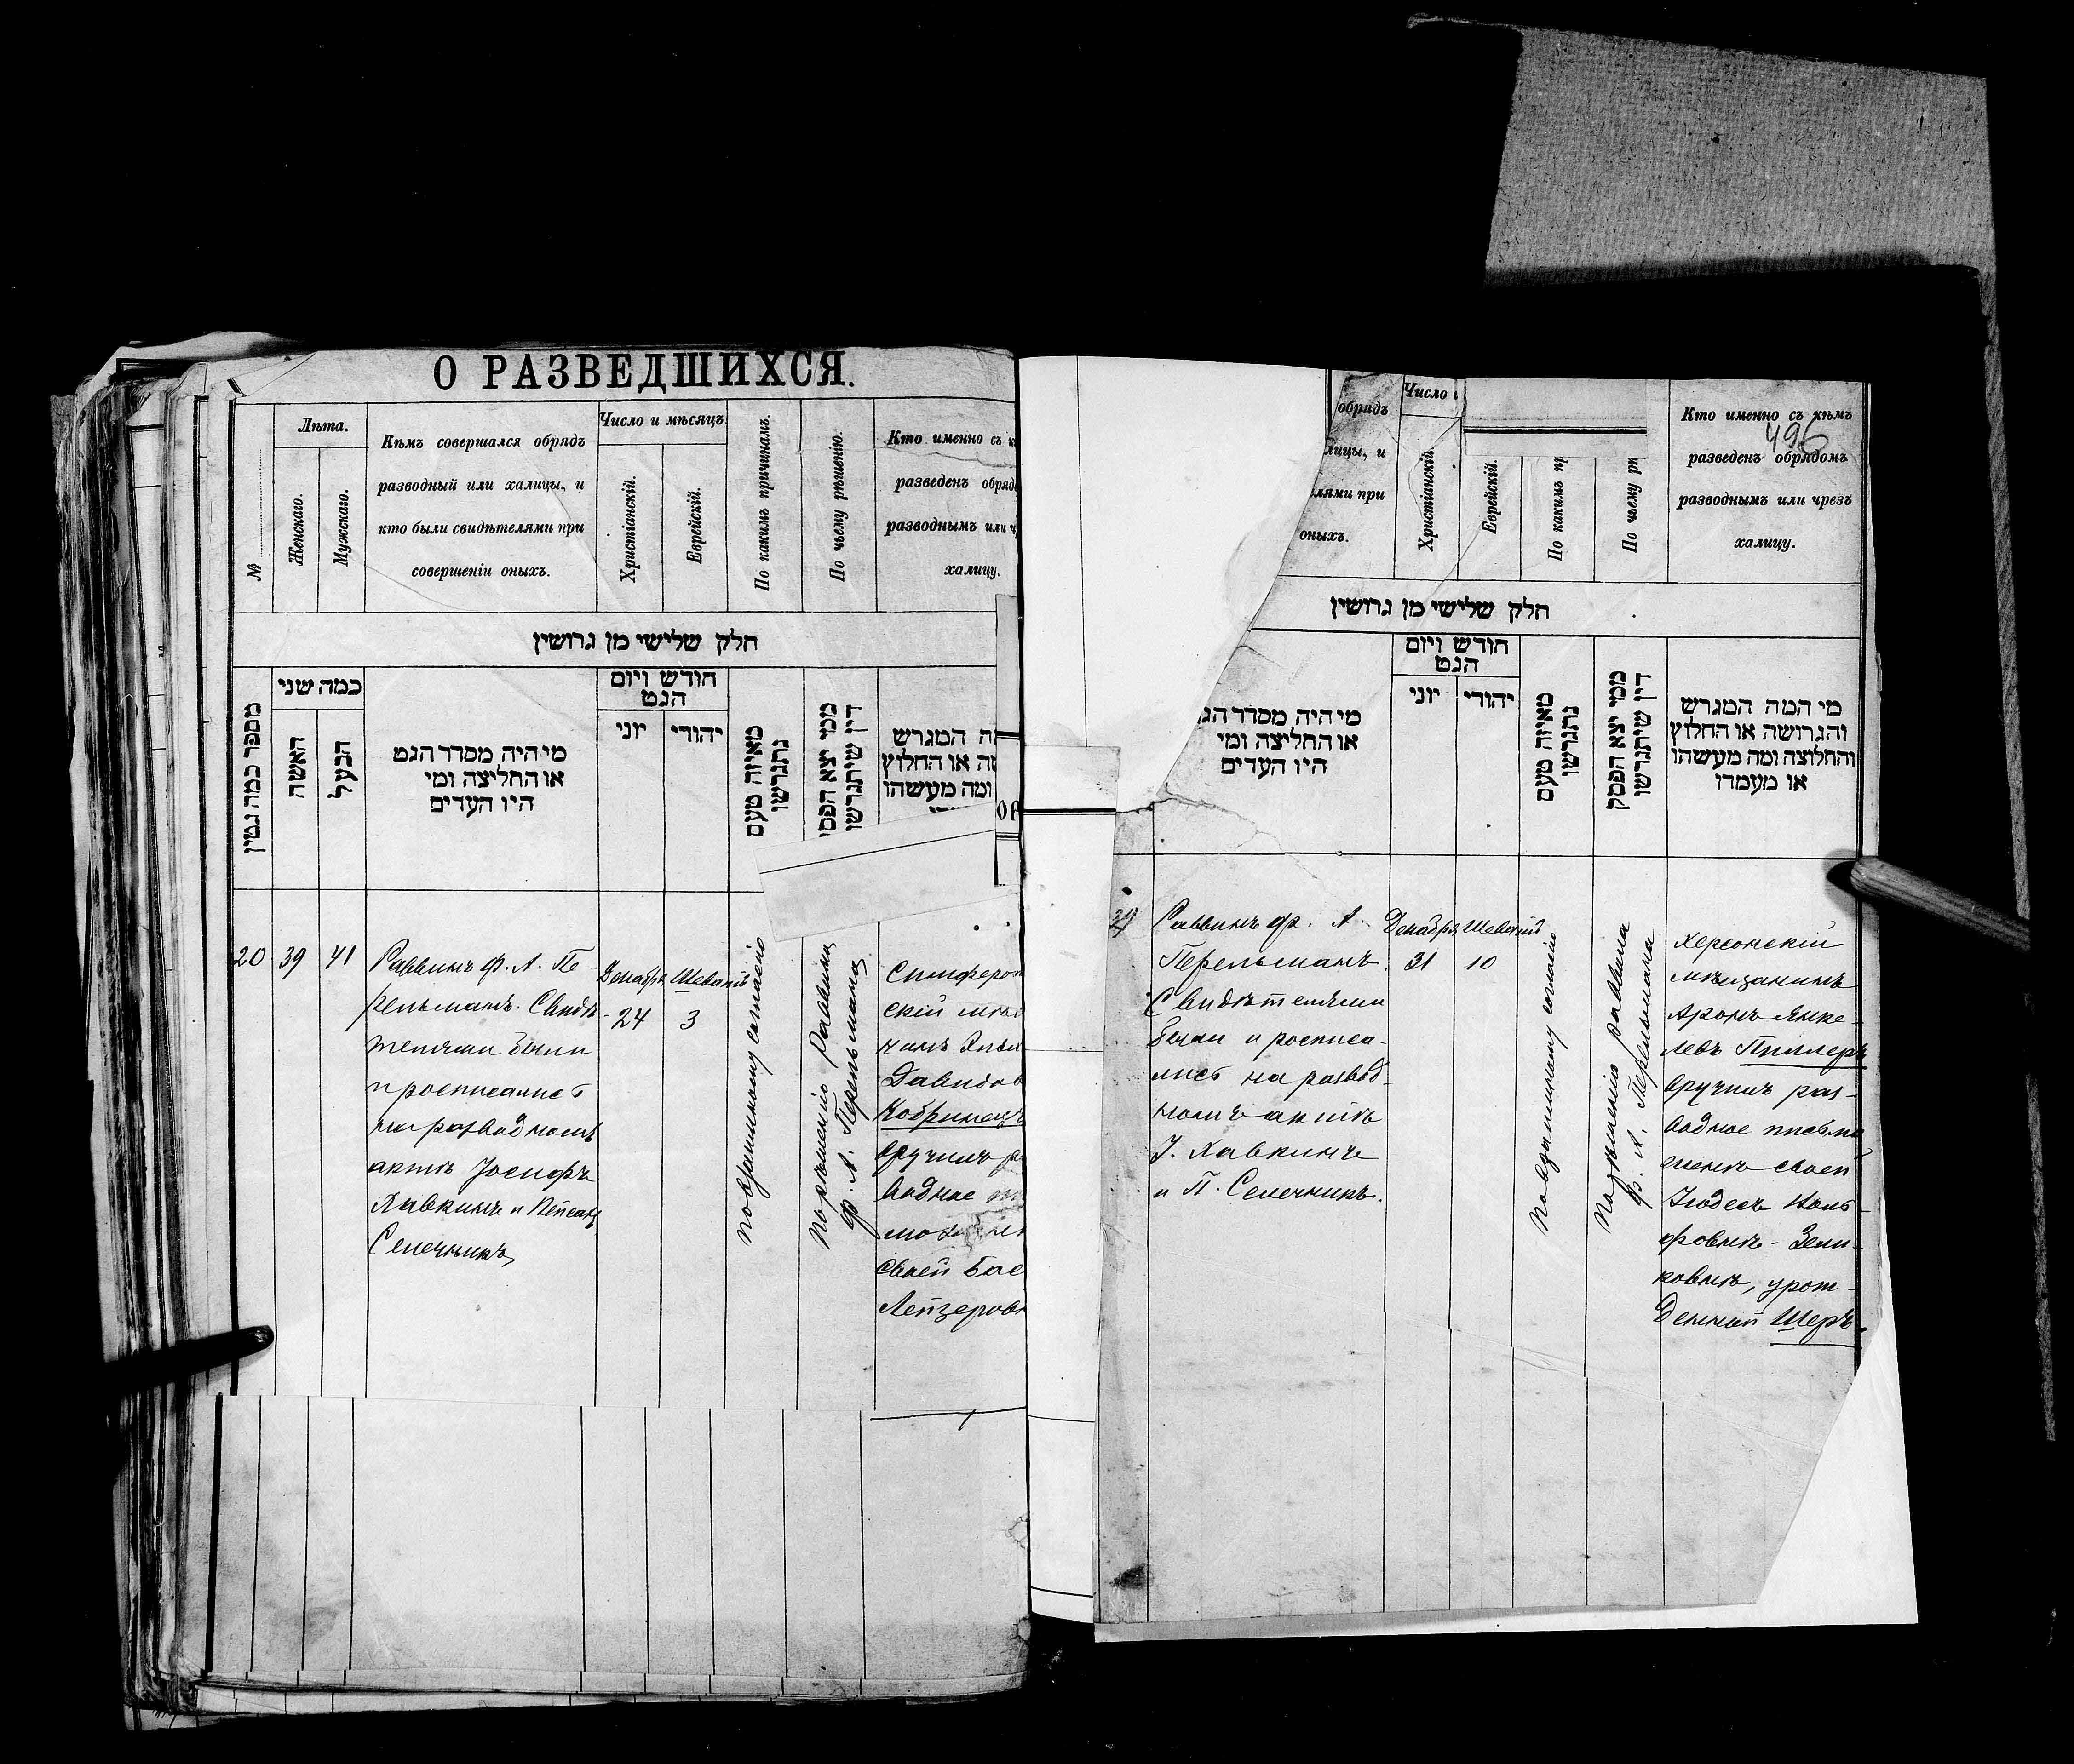 О РАЗВЕДШИХСЯ.
№
Лѣта.
Женскаго.
Мужскаго.
Кѣмъ совершался обрядъ
разводный или халицы, и
кто были свидѣтелями при
совершеніи оныхъ.
Число и мѣсяцъ.
Христіанскій.
Еврейскій.
По какимъ причинамъ.
По чьему рѣшенію.
Кто именно съ к
разведенъ обряд
разводнымъ или ч
халицу.
חלק שלישי מן גרושין
מספר כמה גטין
כמה שני
האשה
הבעל
מי היה מסדר הגט
או החליצה ומי
היו העדים
חודש ויום
הגט
יוני
יהודי
מאיזה טעם
נתגרשו
ממי יצא הפסק
דין שיתגרשו
ה המגרש
שה או החלוץ
ומה מעשהו
20
39
41
Раввинъ Ф. А. Пе-
рельманъ. Свидѣ-
телями были
и росписались
на разводномъ
актѣ Іосифъ
Хавкинъ и Пейсахъ
Селечникъ
Декабря
24
Шевотій
3
по взаимному согласію
По рѣшенію раввина
Ф. А. Перельмана
Симферо
скій мѣщ
нинъ
Давидов
Кобринецъ
вручилъ ра
водное
своей Бас
Лейзеров
обрядъ
лицы, и
лями при
оныхъ.
Число
Христіанскій.
Еврейскій.
По какимъ пр
По чьему рѣ
Кто именно съ кѣмъ
496
разведенъ обрядомъ
разводнымъ или чрезъ
халицу.
חלק שלישי מן גרושין
מי היה מסדר הג
או החליצה ומי
היו העדים
חודש ויום
הגט
יוני
יהודי
מאיזה טעם
נתגרשו
ממי יצא הפסק
דין שיתגרשו
מי המה המגרש
והגרושה או החלוץ
והחלוצה ומה מעשהו
או מעמדו
39
Раввинъ Ф. А.
Перельманъ.
Свидѣтелями
были и росписа-
лись на развод-
номъ актѣ
І. Хавкинъ
и П. Селечникъ.
Декабря
31
Шевотій
10
по взаимному согласію
По рѣшенію раввина
Ф. А. Перельмана
Херсонскій
мѣщанинъ
Аронъ Янке-
левъ Пиллеръ
вручилъ раз-
водное письмо
женѣ своей
Іюдесъ Воль-
фовнѣ-Зели-
ковнѣ, урож-
денной Шеръ.